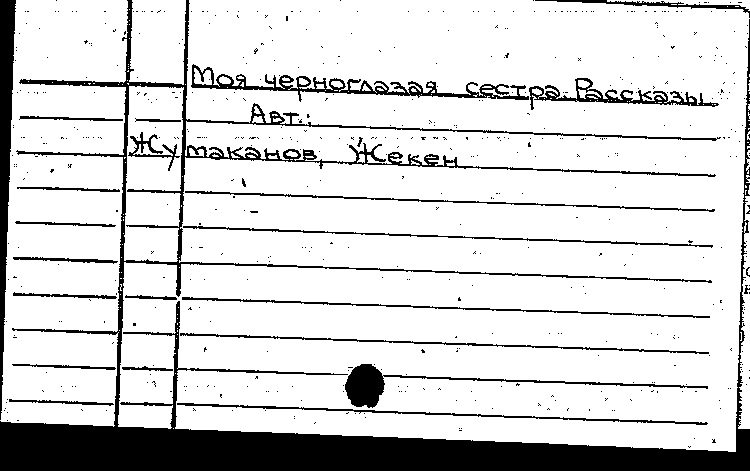 Моя черноглазая сестра. Рассказы
Авт.:
Жумаканов, Жекен